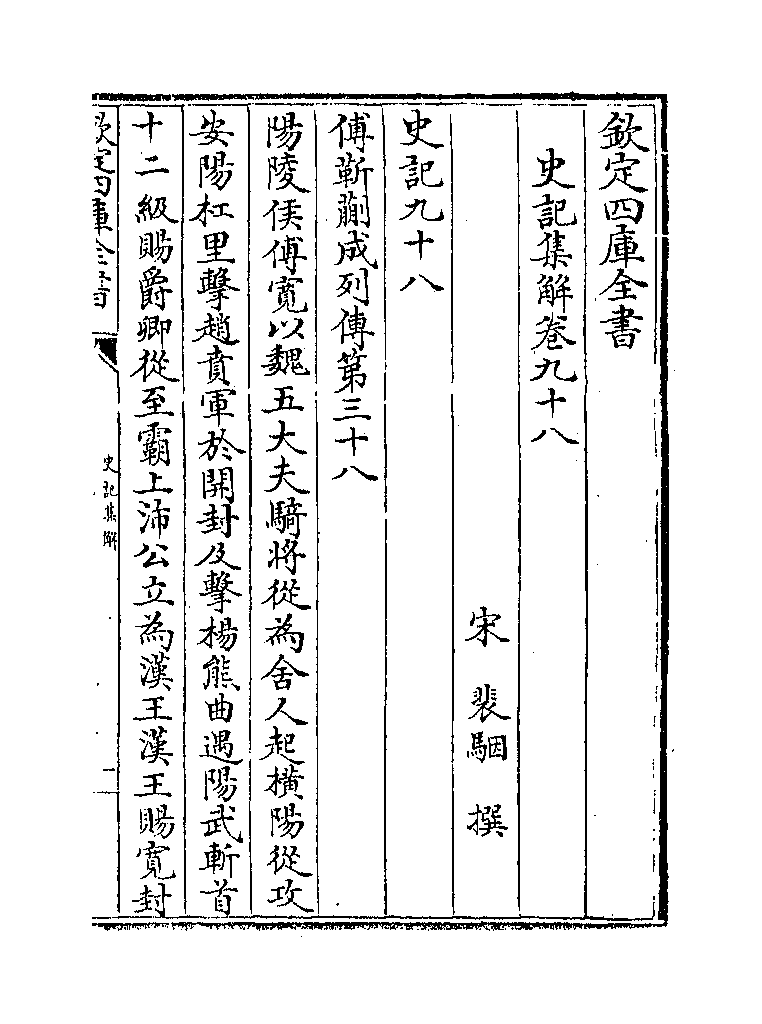 欽定四庫全書
史記集解卷九十八
宋 裴駰 撰
史記九十八
傅靳蒯成列傳第三十八
陽陵侯傅寛以魏五大夫騎將從為舍人起横陽從攻
安陽杠里擊趙賁軍於開封及擊楊熊曲遇陽武斬首
十二級賜爵卿從至霸上沛公立為漢王漢王賜寛封
欽定四庫全書
史記集解
一